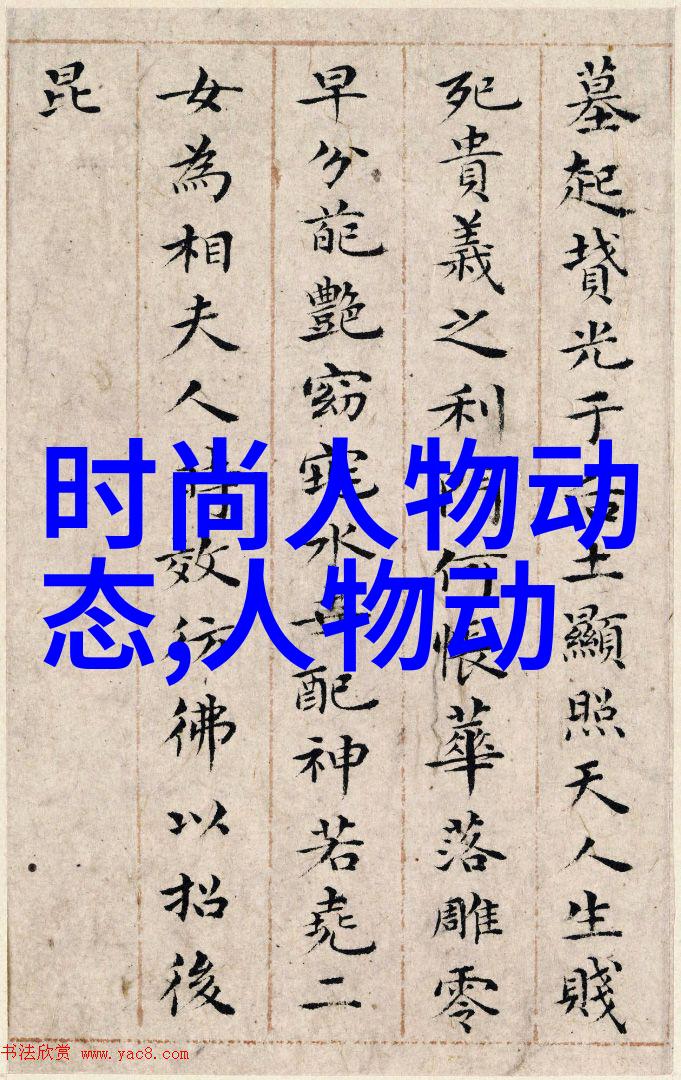 墓起墳光于后土顯照天人生賤
死貴義之利門何悵華落雕零
早分葩艷窈窕永世配神若堯二
女為相夫人時效彷彿以招後
昆
时尚人物动
态,人物动
书法欣赏 www.yac8.com